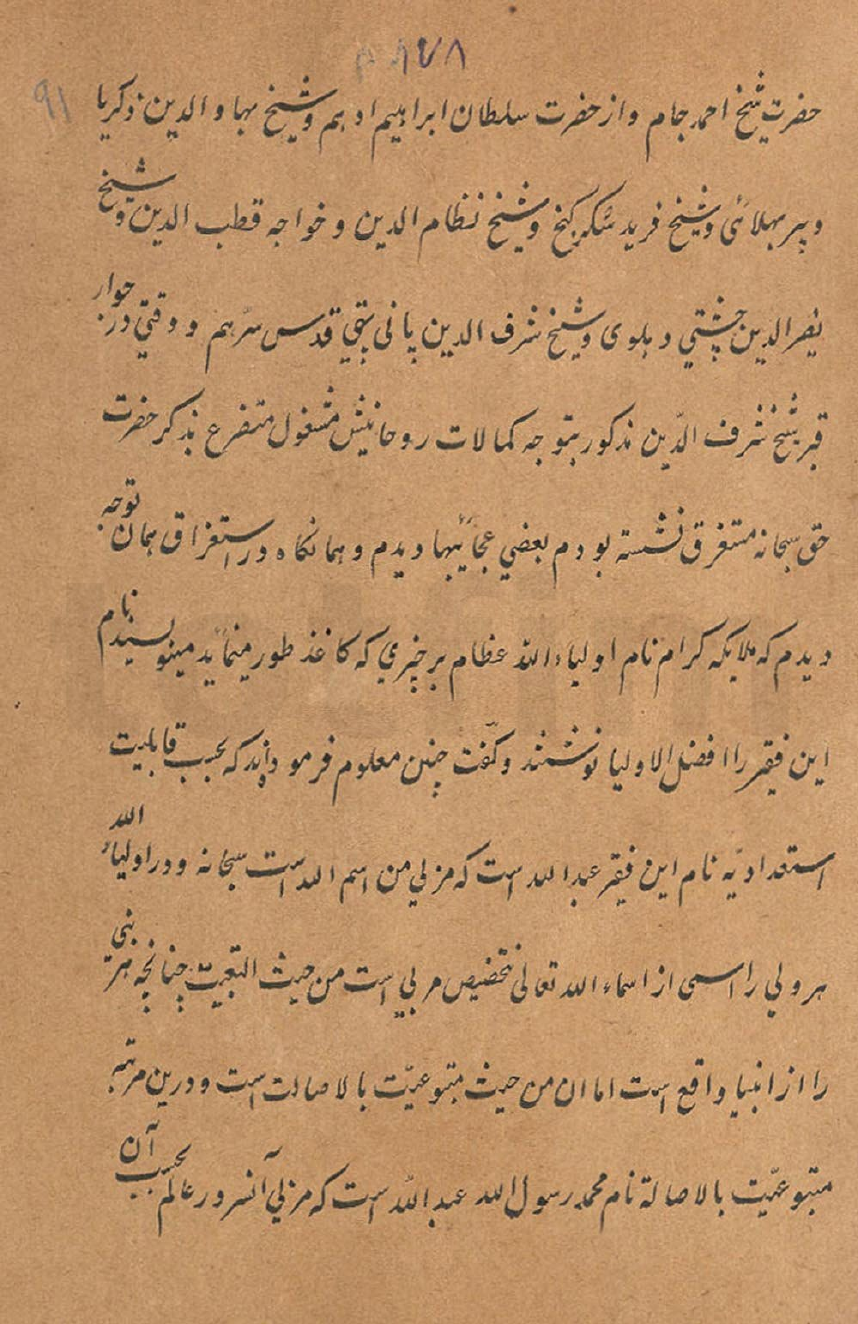 ۸۷۸
۹۱
حضرت شیخ احمد جام و از حضرت سلطان ابراهیم ادهم و شیخ بهاو الدین ذکریا
و پیر بهلائی و شیخ فرید شکر گنج و شیخ نظام الدین و خواجه قطب الدین و شیخ
نصر الدین چشتی دهلوی و شیخ شرف الدین پانی پتی قدس سرهم و وقتی در جوار
قبر شیخ شرف الدّین مذکور بتوجه کمالات روحانیتش مشغول متضرع بذکر حضرت
حق سبحانه مستغرق نشسته بودم بعضی عجائبها دیدم و همانگاه در استغراق همان توجه
دیدم که ملایکه کرام نام اولیاء الله عظام بر چیزی که کاغذ طور مینمائد مینویسند نام
این فقیر را افضل الاولیا نوشتند و گفت چنین معلوم فرمودند که بسبب قابلیت
استعدادیّه نام این فقیر عبد الله است که مربی من اسم الله است سبحانه و در اولیاء الله
هر ولی را اسمی از اسماء الله تعالی تخصیص مربی است من حیث التبعیت چنانچه هر نبی
را از انبیا واقع است اما ان من حیث متبوعیّت بالاصالت است و درین مرتبه
متبوعیّت بالاصالة نام محمد رسول الله عبد الله است که مربی آنسرور عالم بسبب آن